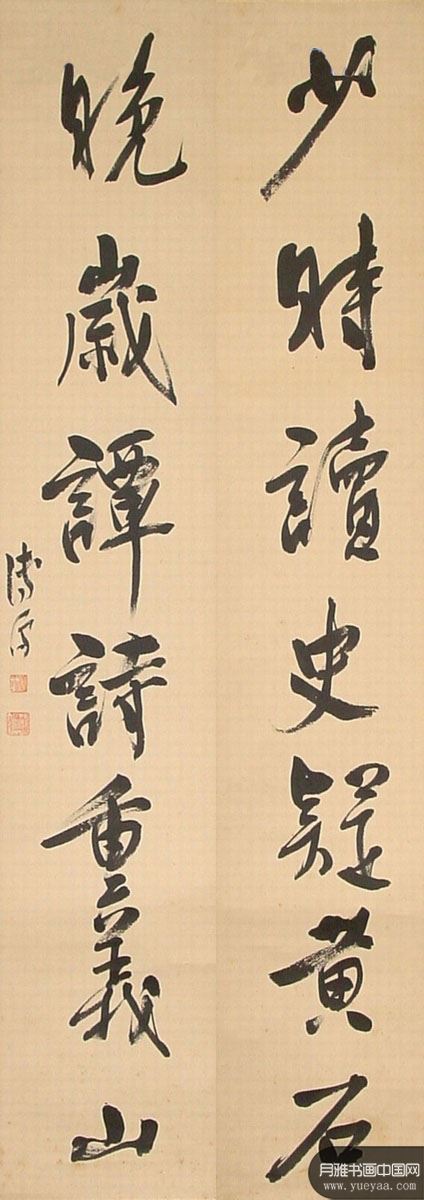 少時讀史疑黃石
晚歲譚詩重義山
溥儒
月雅书画中国网
www.yueyaa.com